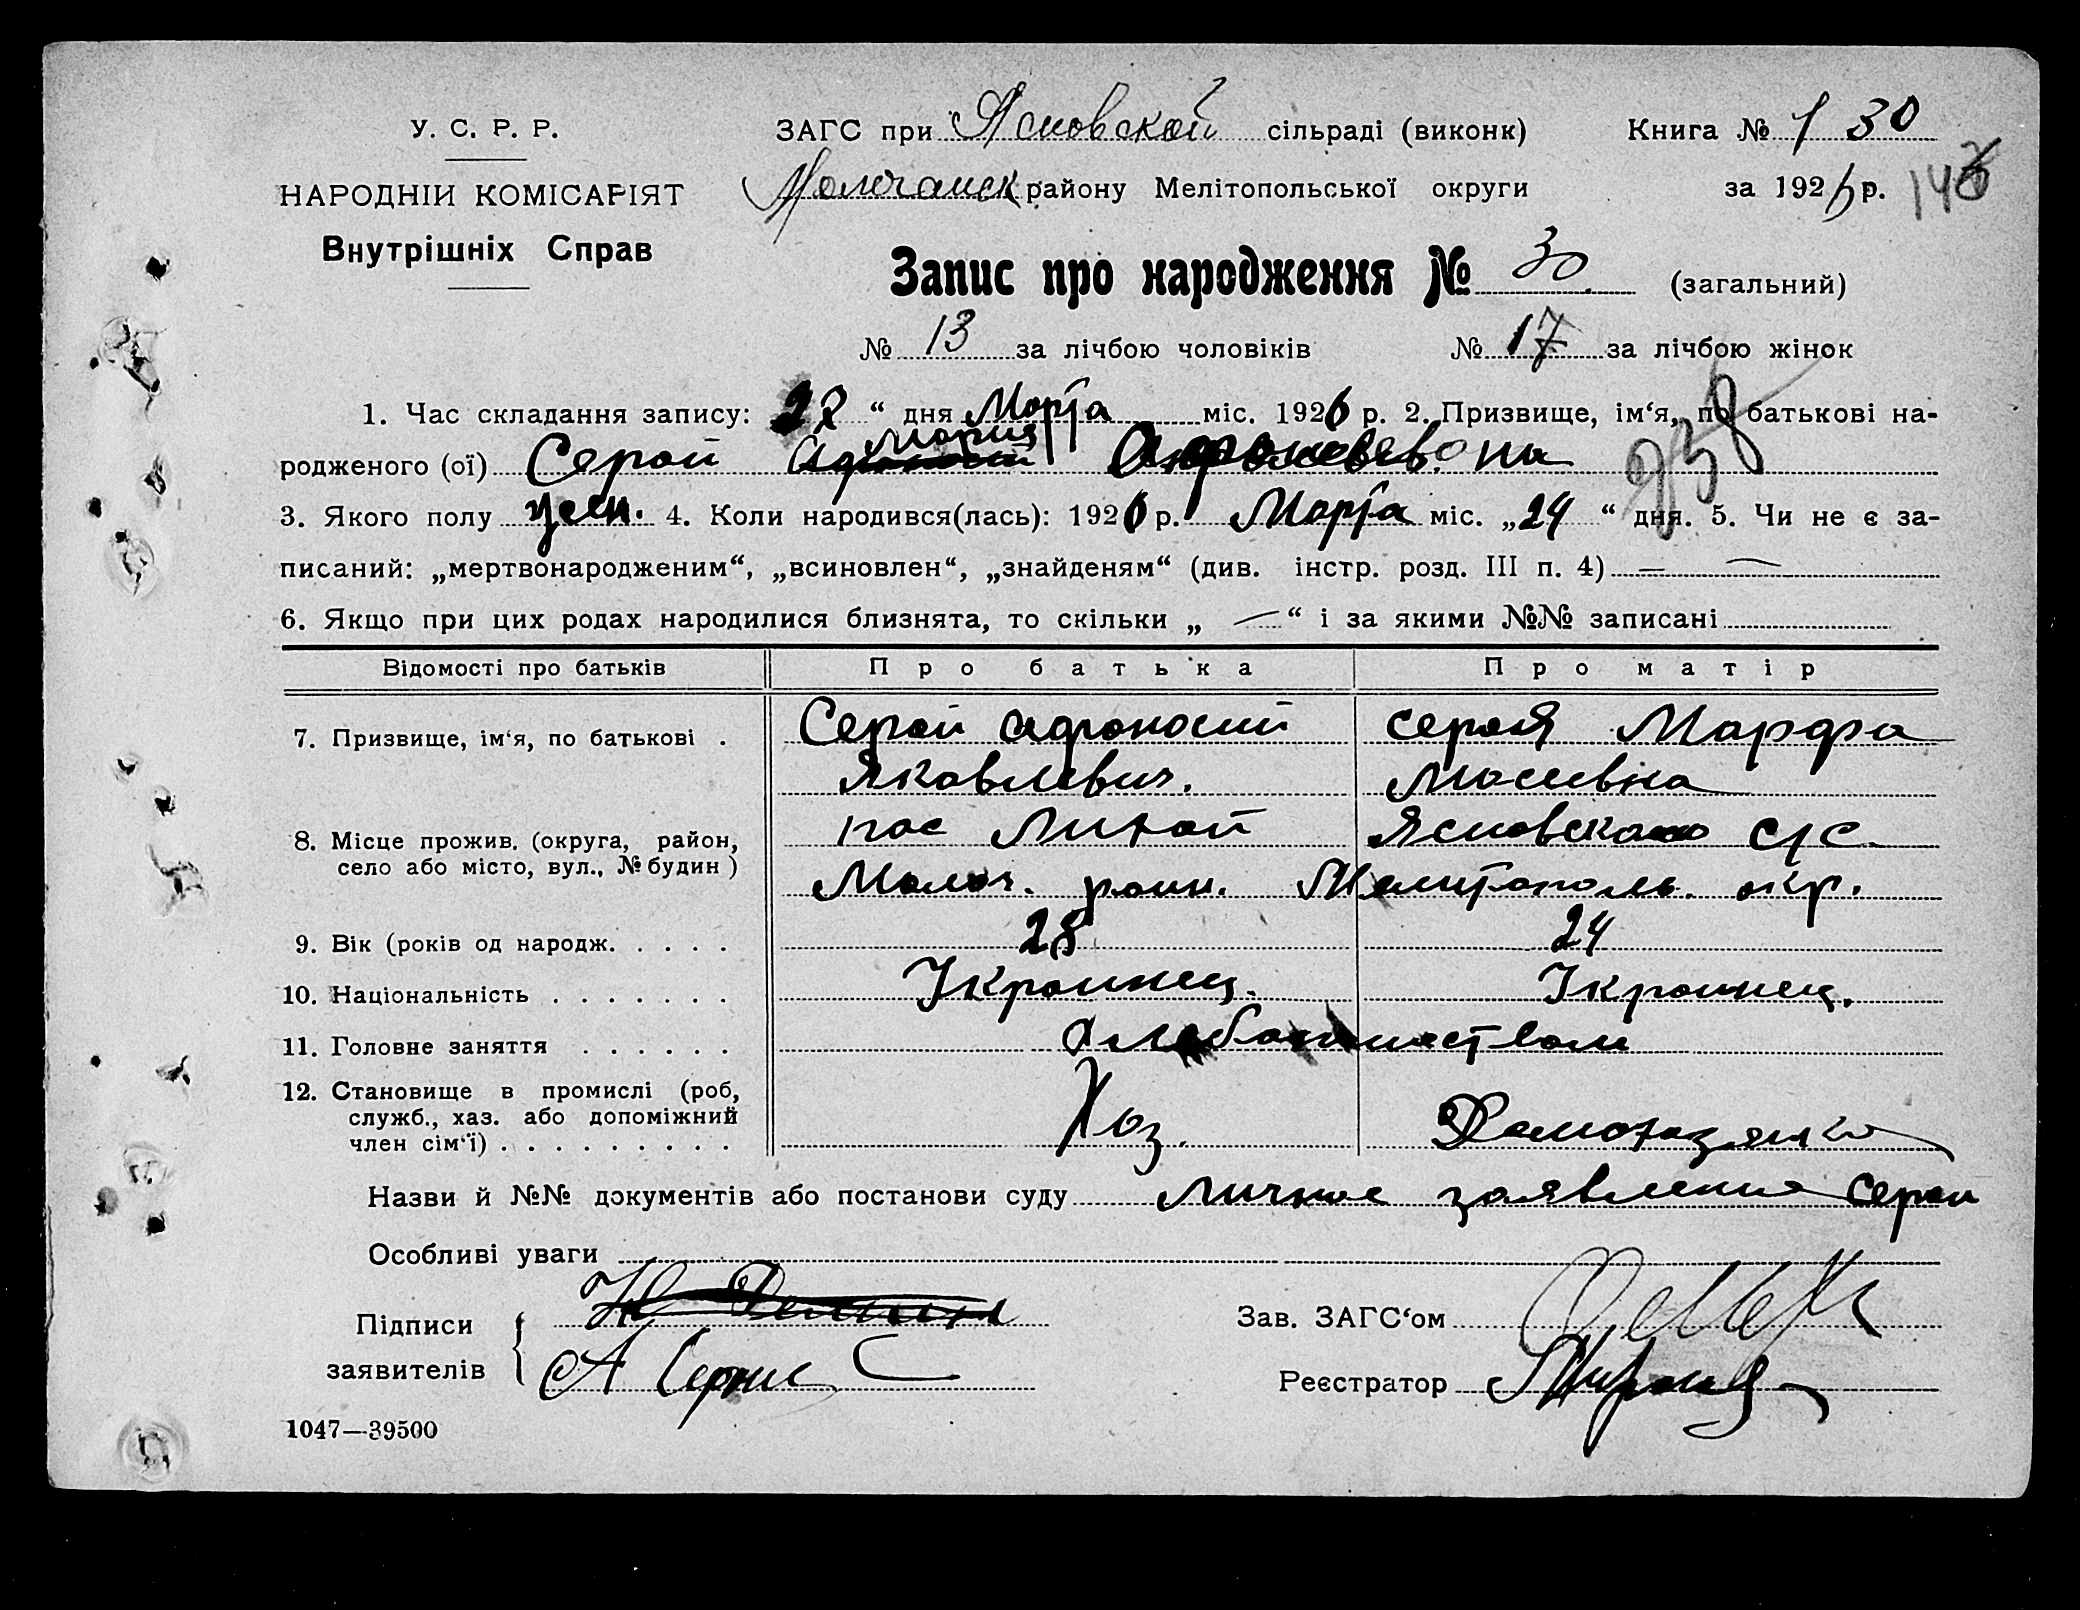 У. С. Р. Р.
НАРОДНІЙ КОМІСАРІЯТ
Внутрішніх Справ
ЗАГС при Ясновской сільраді (виконк) Книга № 1 30
Молочанск району Мелітопольської округи за 1926 р.
Запис про народження № 30 (загальний)
№ 13 за лічбою чоловіків № 17 за лічбою жінок
1. Час складання запису: 28 “ дня Марта міс. 1926 р. 2. Призвище, ім‘я, по батькові на-
Мария
родженого (ої) Серой
3. Якого полу жен. 4. Коли народився(лась): 1926 р. Марта міс. „24“ дня. 5. Чи не є за-
писаний: „мертвонародженим“, „всиновлен“, „знайденям“ (див. інстр. розд. III п. 4) —
6. Якщо при цих родах народилися близнята, то скільки „ — “ і за якими №№ записані
Відомості про батьків Про батька Про матір
7. Призвище, ім‘я, по батькові . Серой Афонасий Серая Марфа
Яковлевич. Моисевна
8. Місце прожив. (округа, район, пос Ясновского с/с
село або місто, вул., № будин ) Молоч. район. Мелитополь. окр.
9. Вік (років од народж. . . . . 28 24
10. Національність . . . . . . . Украинец. Украинец.
11. Головне заняття . . . . . .
12. Становище в промислі (роб, Хоз. Домохазяйка
служб., хаз. або допоміжний
член сім‘ї) . . . . . . . . .
Назви й №№ документів або постанови суду Личное заявление Серой
Особливі уваги
Підписи Зав. ЗАГС‘ом
заявителів Реєстратор
1047—39500